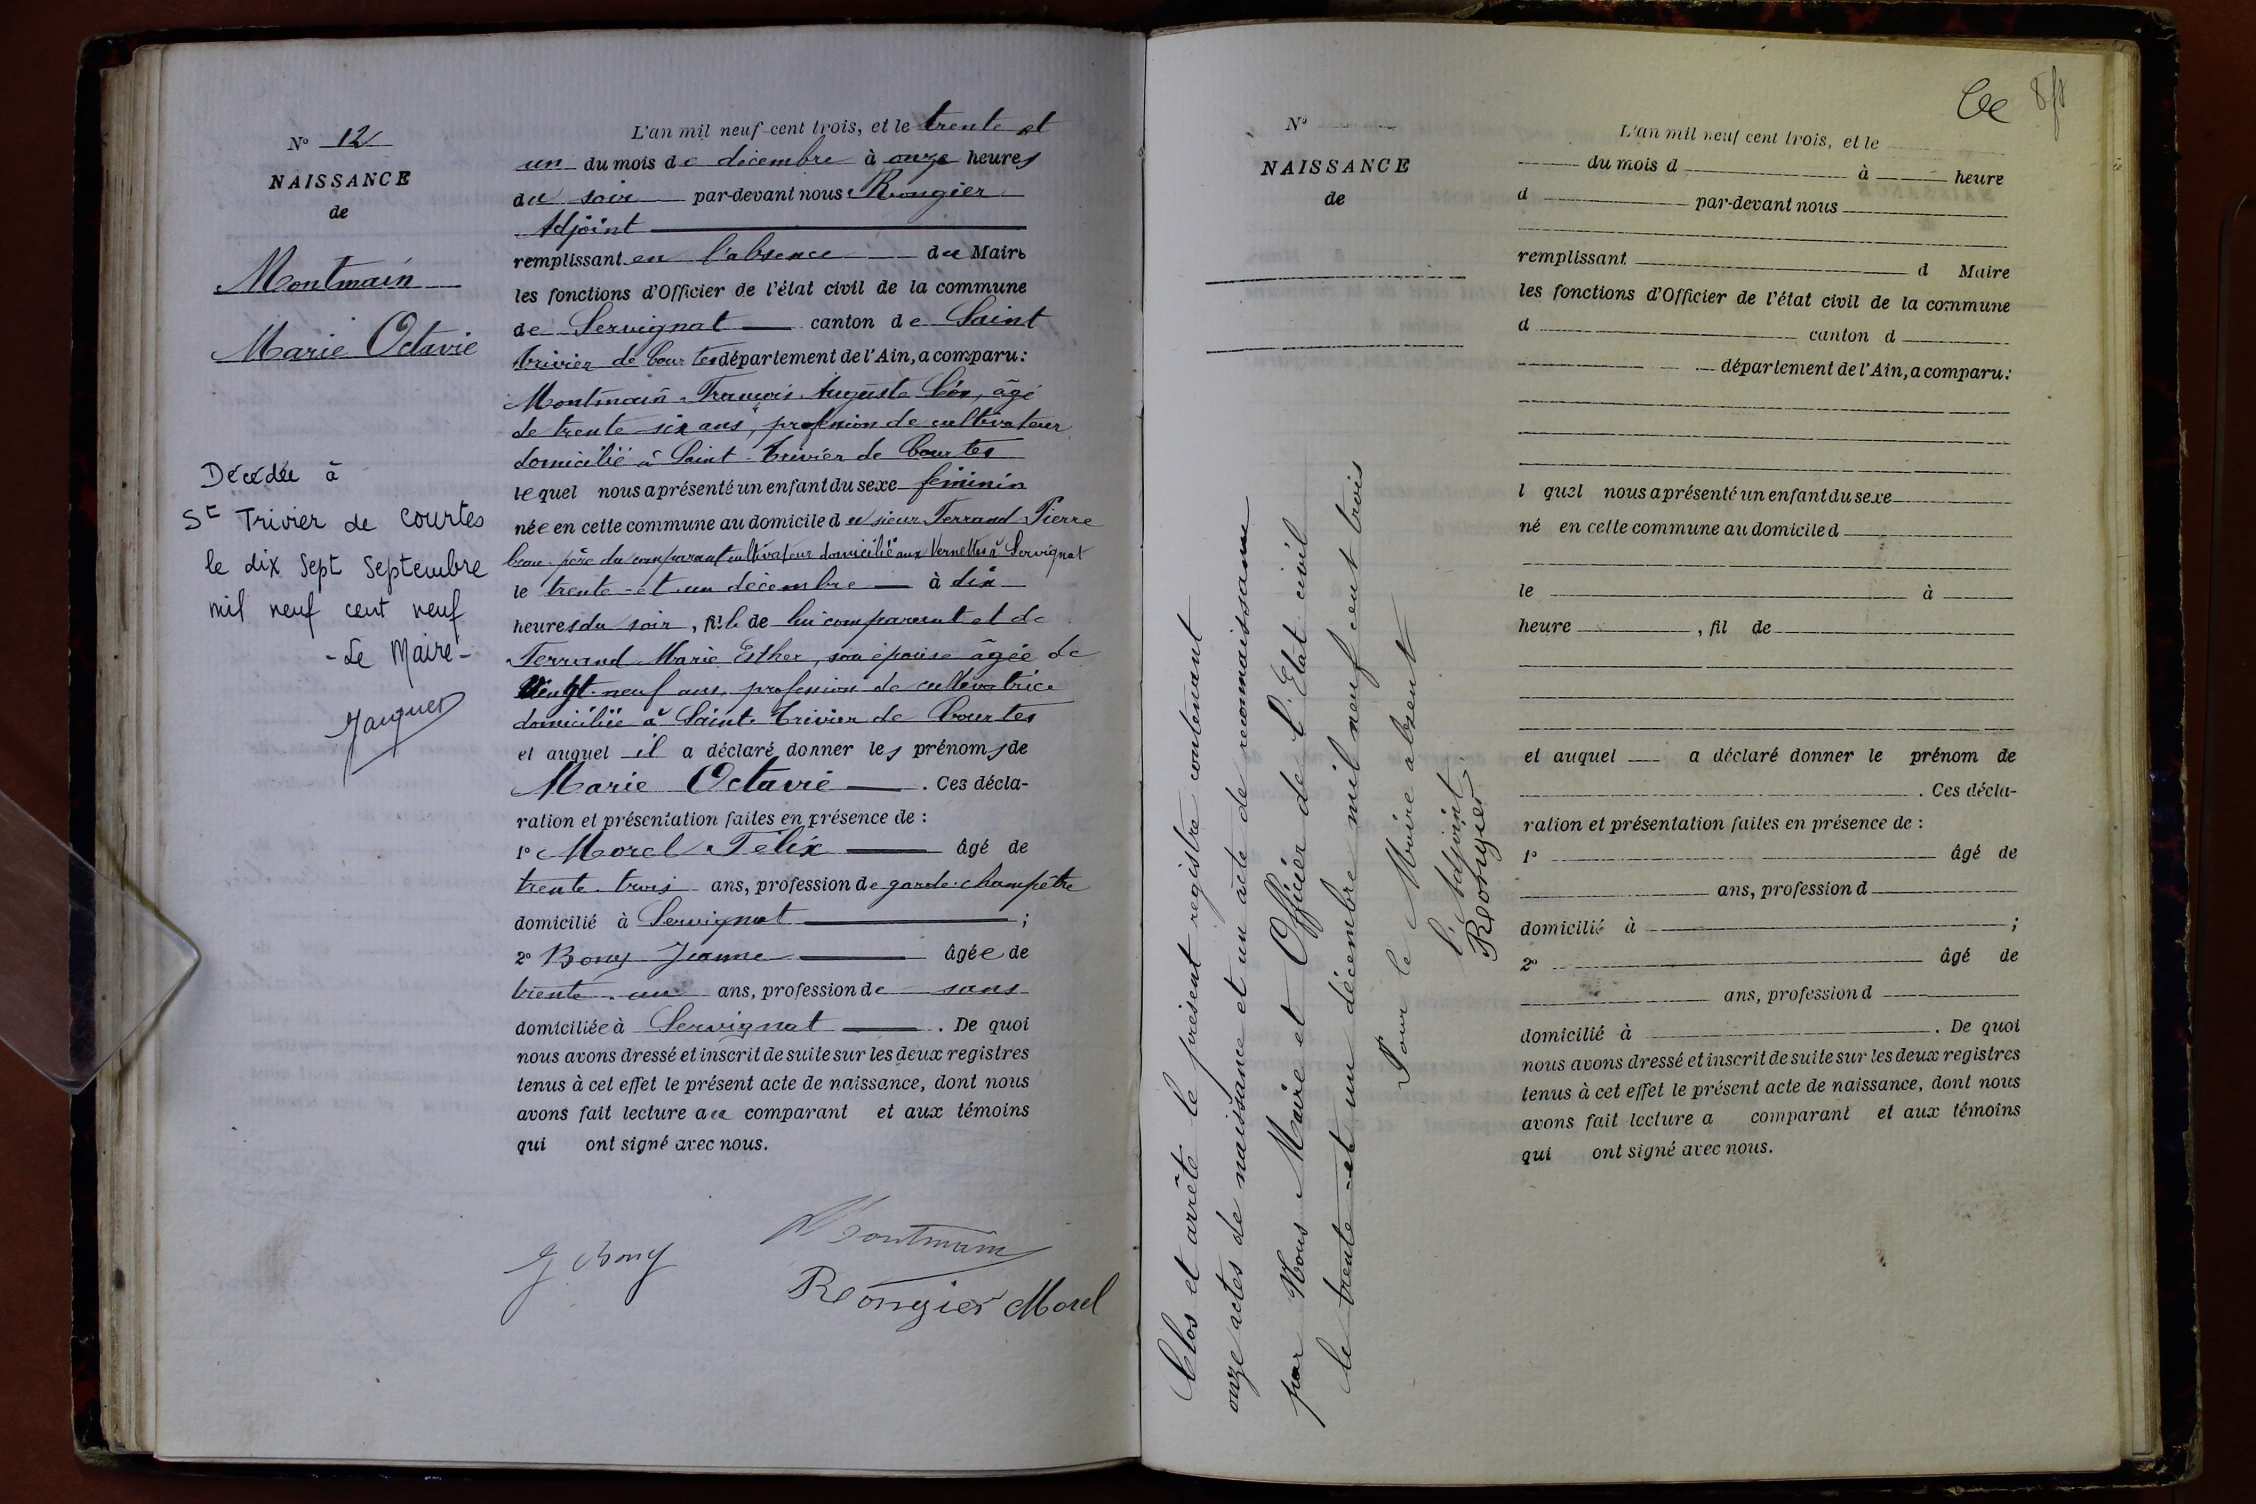 N° 12
NAISSANCE
de
Montmain
Marie Octavie
Décédée à
St Trivier de Courtes
le dix Sept Septembre
mil neuf cent neuf
- Le Maire -
L'an mil neuf cent trois, et le trente et
un du mois de décembre à onze heures
du soir par-devant nous Rongier
Adjoint
remplissant en l'absence du Maire
les fonctions d'Officier de l'état civil de la commune
de Servignat canton de Saint
trivier de Courtes département de l'Ain, a comparu:
Montmain François Auguste Léon, âgé
de trente six ans, profession de cultivateur
domicilié à Saint-Trivier de Courtes
lequel nous a présenté un enfant du sexe féminin
née en cette commune au domicile du sieur Ferrand Pierre
beau-père du comparant cultivateur domicilié aux Vernettes à Servignat
le trente-et-un décembre à dix
heures du soir, fille de lui comparant et de
Ferrand Marie Esther, son épouse âgée de
Vingt-neuf ans, profession de cultivatrice
domiciliée à Saint-trivier de Courtes
et auquel il a déclaré donner les prénoms de
Marie Octavie . Ces décla-
ration et présentation faites en présence de :
1° Morel Félix âgé de
trente trois ans, profession de garde-champêtre
domicilié à Servignat ;
2° Bony Jeanne âgée de
trente un ans, profession de sans
domiciliée à Servignat . De quoi
nous avons dressé et inscrit de suite sur les deux registres
tenus à cet effet le présent acte de naissance, dont nous
avons fait lecture au comparant et aux témoins
qui ont signé avec nous.
Montmain
J Bony
Rongier Morel
Clos et arrêté le présent registre contenant
onze actes de naissance et un acte de reconnaissance
par Nous Maire et Officier de l'Etat civil
le trente-et un décembre mil neuf cent trois
Pour le Maire absent
l'Adjoint
Rongier
N°
NAISSANCE
de
L'an mil neuf cent trois, et le
du mois d à heure
d par-devant nous
remplissant d Maire
les fonctions d'Officier de l'état civil de la commune
d canton d
département de l'Ain, a comparu:
l quel nous a présenté un enfant du sexe
né en cette commune au domicile d
le à
heure , fil de
et auquel a déclaré donner le prénom de
. Ces décla-
ration et présentation faites en présence de :
1° âgé de
ans, profession d
domicilié à ;
2° âgé de
ans, profession d
domicilié à . De quoi
nous avons dressé et inscrit de suite sur les deux registres
tenus à cet effet le présent acte de naissance, dont nous
avons fait lecture a comparant et aux témoins
qui ont signé avec nous.